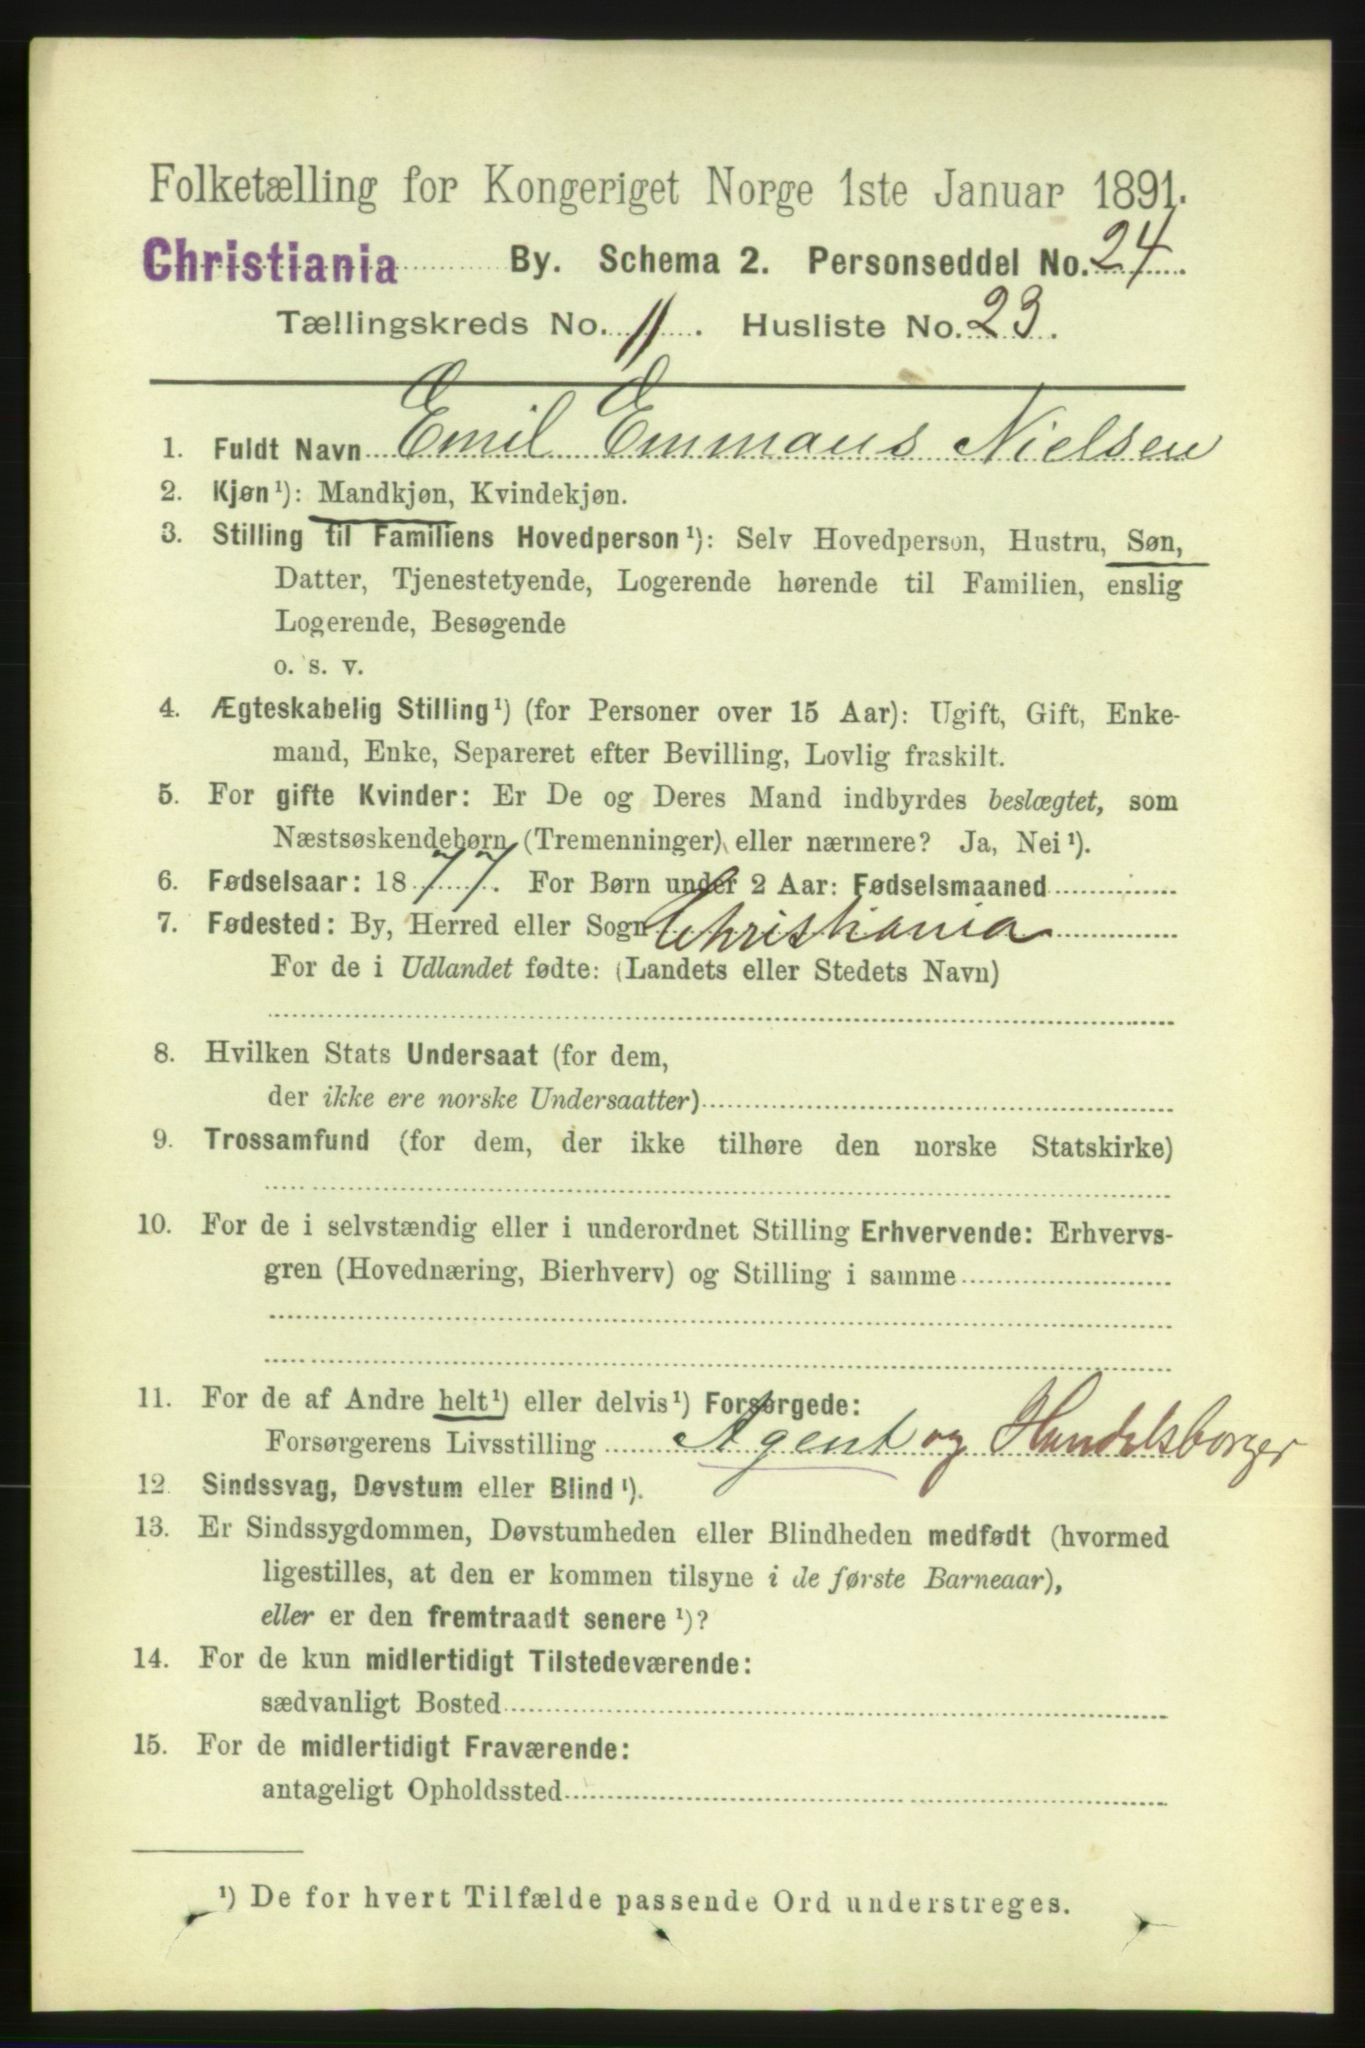 Folketælling for Kongeriget Norge 1ste Januar 1891.
Christiania By. Schema 2. Personseddel No. 24
Tællingskreds No. 11. Husliste No. 23.
1. Fuldt Navn Emil Emmaus Nielsen
2. Kjøn¹): Mandkjøn, Kvindekjøn.
3. Stilling til Familiens Hovedperson¹): Selv Hovedperson, Hustru, Søn,
Datter, Tjenestetyende, Logerende hørende til Familien, enslig
Logerende, Besøgende
o. s. v.
4. Ægteskabelig Stilling¹) (for Personer over 15 Aar): Ugift, Gift, Enke-
mand, Enke, Separeret efter Bevilling, Lovlig fraskilt.
5. For gifte Kvinder: Er De og Deres Mand indbyrdes beslægtet, som
Næstsøskendebørn (Tremenninger) eller nærmere? Ja, Nei¹).
6. Fødselsaar: 1877. For Børn under 2 Aar: Fødselsmaaned
7. Fødested: By, Herred eller Sogn Christiania
For de i Udlandet fødte: (Landets eller Stedets Navn)
8. Hvilken Stats Undersaat (for dem,
der ikke ere norske Undersaatter)
9. Trossamfund (for dem, der ikke tilhøre den norske Statskirke)
10. For de i selvstændig eller i underordnet Stilling Erhvervende: Erhvervs-
gren (Hovednæring, Bierhverv) og Stilling i samme
11. For de af Andre helt¹) eller delvis¹) Forsørgede:
Forsørgerens Livsstilling Agent og Handelsborger
12. Sindssvag, Døvstum eller Blind¹).
13. Er Sindssygdommen, Døvstumheden eller Blindheden medfødt (hvormed
ligestilles, at den er kommen tilsyne i de første Barneaar),
eller er den fremtraadt senere¹)?
14. For de kun midlertidigt Tilstedeværende:
sædvanligt Bosted
15. For de midlertidigt Fraværende:
antageligt Opholdssted
¹) De for hvert Tilfælde passende Ord understreges.